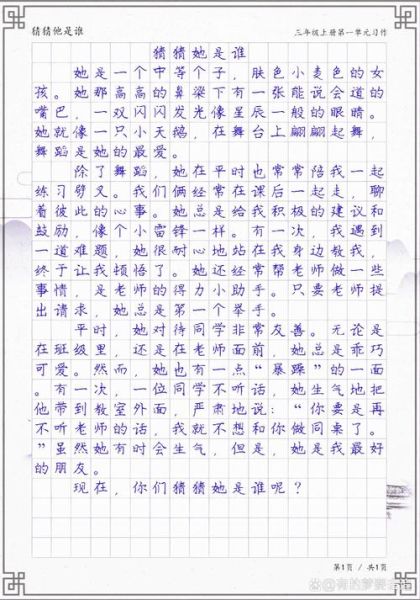 猜猜他是谁
三年级上册第一单元习作
猜猜她是谁
她是一个中等个子，肤色小麦色的女
孩。她那高高的鼻梁下有一张能说会道的
嘴巴，一双闪闪发光像星辰一般的眼睛。
她就像一只小天鹅，在舞台上翩翩起舞，
舞蹈是她的最爱。
除了舞蹈，她在平时也常常陪我一起
练习劈叉。我们俩经常在课后一起走，聊
着彼此的心事。她总是给我积极的建议和
鼓励，像个小雷锋一样。有一次，我遇到
一道难题，她很耐心地站在我身边教我，
终于让我顿悟了。她还经常帮老师做一些
事情，是老师的得力小助手。只要老师提
出请求，她总是第一个举手。
平时，她对待同学非常友善。无论是
在班级里，还是在老师面前，她总是乖巧
可爱。然而，她也有一点“暴躁”的一面
。有一次，一位同学不听话，她生气地把
他带到教室外面，严肃地说：“你要是再
不听老师的话，我就不想和你做同桌了。
”虽然她有时会生气，但是，她是我最好
的朋友。
现在，你们猜猜她是谁呢？
第1页 / 共1页